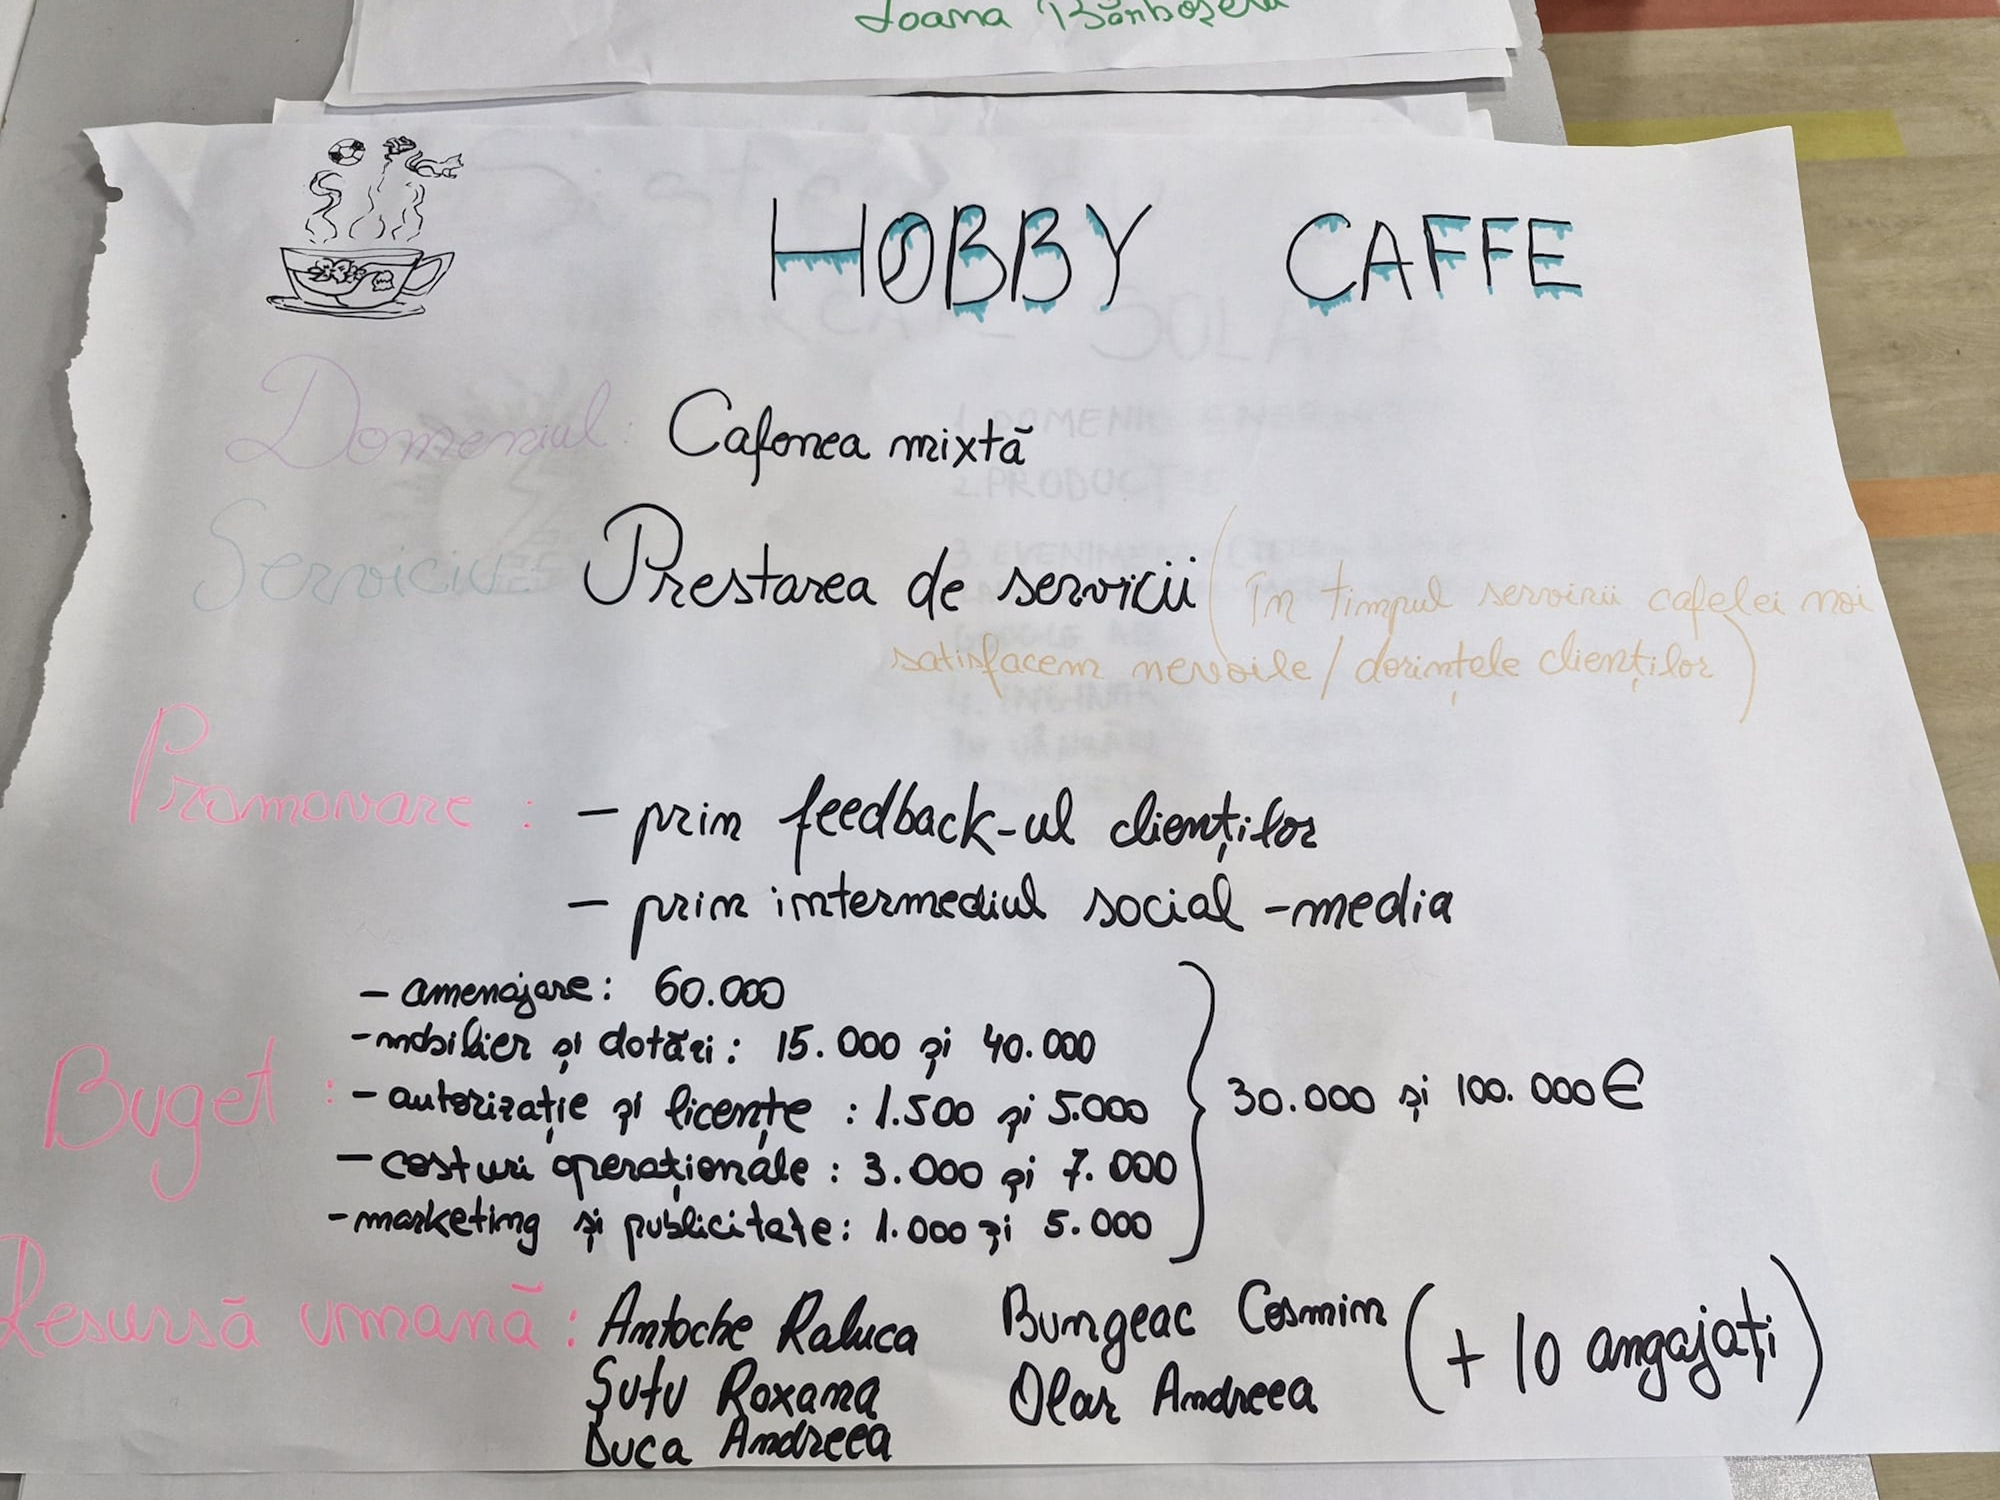 Ioana
HOBBY CAFFE
Domeniul: Cafenea mixtă
Serviciu: Prestarea de servicii (În timpul servirii cafelei noi
satisfacem nevoile/dorințele clienților)
Promovare: - prin feedback-ul clienților
- prin intermediul social-media
- amenajare: 60.000
- mobilier și dotări: 15.000 și 40.000
Buget: - autorizație și licențe: 1.500 și 5.000 30.000 și 100.000€
- costuri operaționale: 3.000 și 7.000
- marketing și publicitate: 1.000 și 5.000
Resursă umană: Antoche Raluca Bungeac Cosmin (+ 10 angajați)
Șutu Roxana Olar Andreea
Duca Andreea